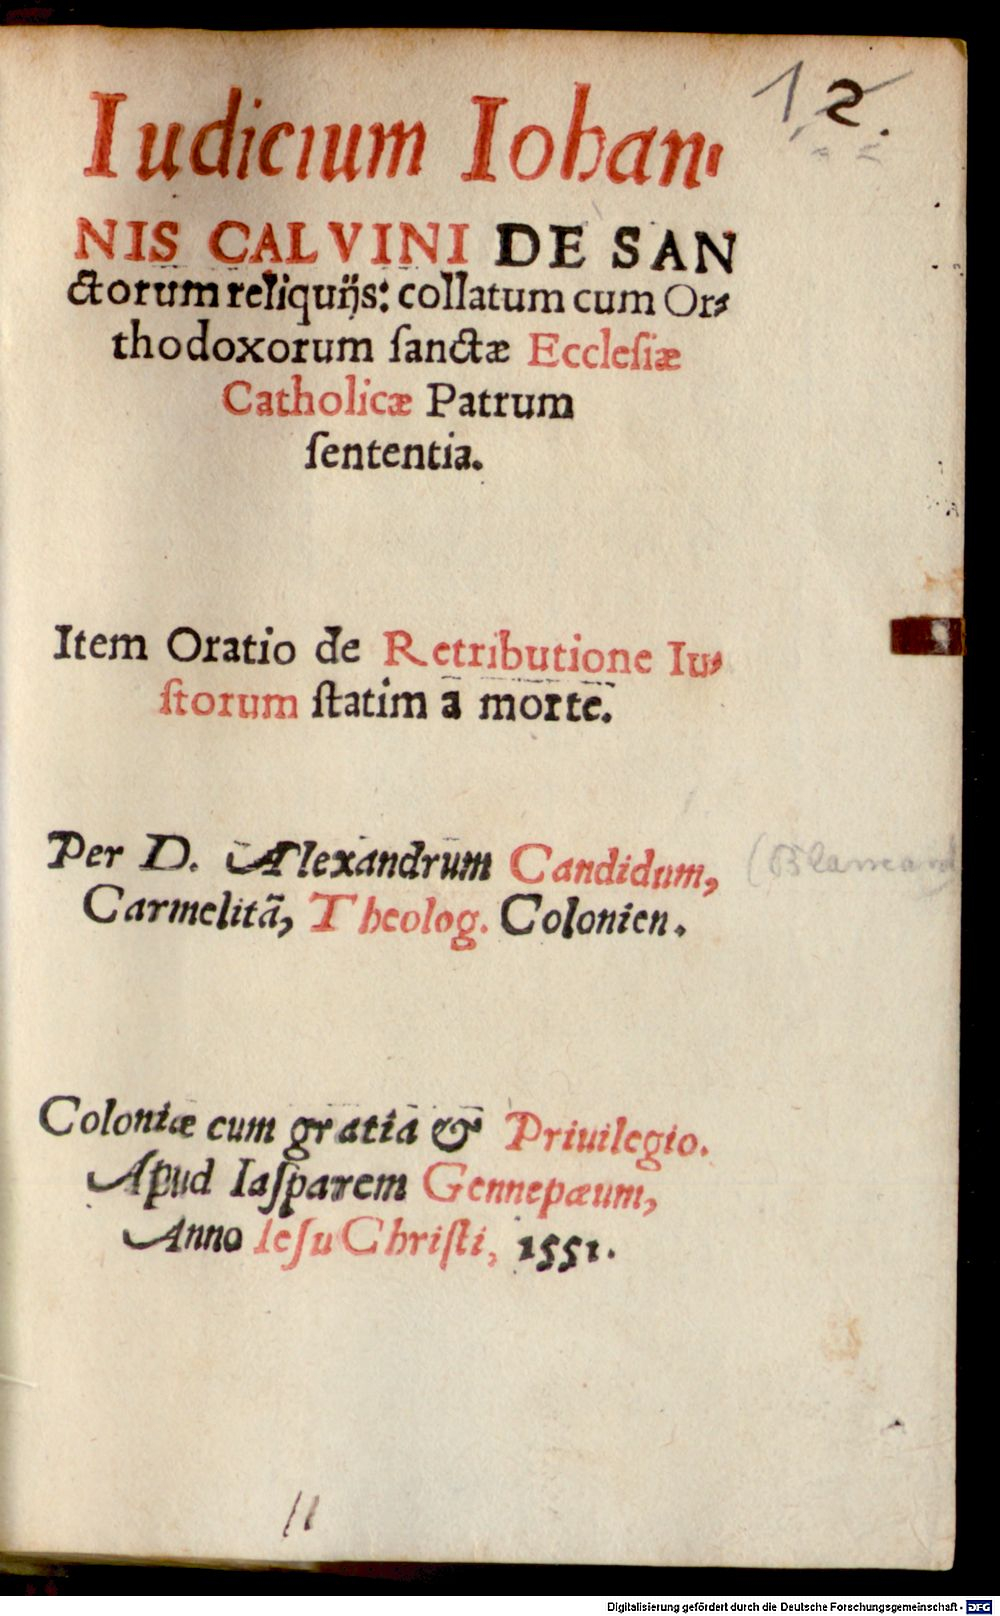 12.
Iudicium Iohan-
NIS CALVINI DE SAN
ctorum reliquijs: collatum cum Or-
thodoxorum sanctæ Ecclesiæ
Catholicæ Patrum
sententia.
Item Oratio de Retributione Iu-
storum statim à morte.
Per D. Alexandrum Candidum,
Carmelitā, Theolog. Colonien.
Coloniæ cum gratia & Priuilegio.
Apud Iasparem Gennepæum,
Anno Iesu Christi, 1551.
Digitalisierung gefördert durch die Deutsche Forschungsgemeinschaft - DFG